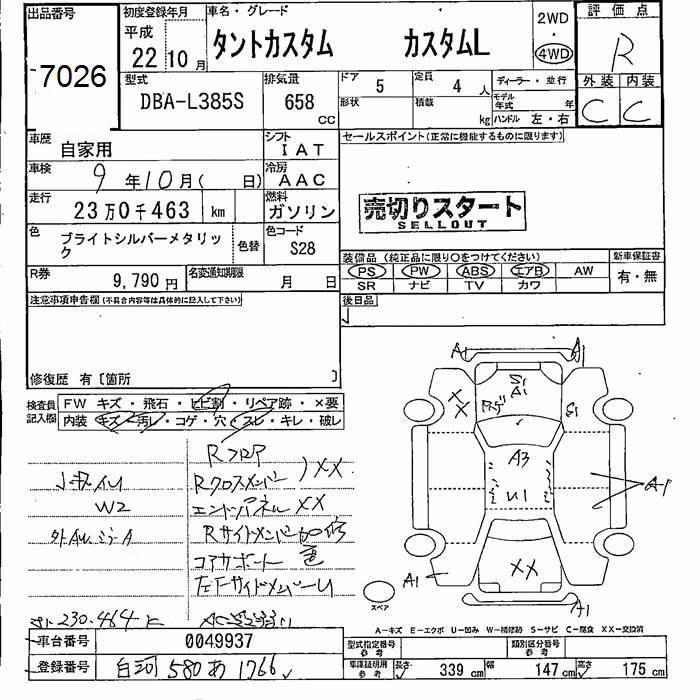 出品番号
7026
初度登録年月
平成
22 10月
車名・グレード
タントカスタム カスタムL
2WD
・
4WD
評価点
R
型式
DBA-L385S
排気量
658
CC
ドア
5
形状
定員
4 人
積載
kg
ディーラー・並行
モデル年式 年
ハンドル 左・右
外装 内装
C C
車歴
自家用
シフト
IAT
車検
9 年 10 月( 日)
冷房
AAC
走行
23万0千463 km
燃料
ガソリン
色
ブライトシルバーメタリック
色替
色コード
S28
R券
9,790 円
名変通知期限
月 日
セールスポイント(正常に機能するものに限ります)
売切りスタート
SELLOUT
装備品(純正品に限り○をつけてください)
PS PW ABS エアB AW
SR ナビ TV カワ
新車保証書
有・無
後日品
注意事項申告欄(不具合内容等は具体的に記入して下さい)
修復歴 有〔箇所 〕
検査員記入欄
FW キズ・飛石・ヒビ割・リペア跡・×要
内装 キズ・汚レ・コゲ・穴・スレ・キレ・破レ
Rフロア
Rクロスメンバー )XX
W2
エンドパネル XX
Rサイドメンバー
コアサポート
A1 A1
XX
S1
A1
S1
A3
U1
A-1
XX
A1
A1
スペア
230.464
A-キズ E-エクボ U-凹み W-補修跡 S-サビ C-腐食 XX-交換済
車台番号
0049937
登録番号
白河 580 あ 1766
型式指定番号
参考
類別区分番号
参考
車庫証明用
参考
長さ 339 cm 幅 147 cm 高さ 175 cm